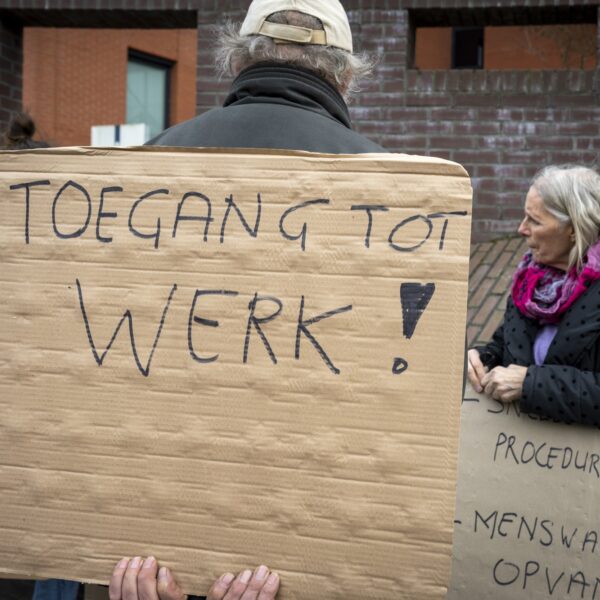 TOEGANG TOT
WERK!
PROCEDUR
- MENSWA
OPVAN